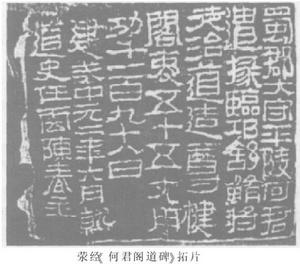 蜀郡大守平陵何君
遣掾臨邛舒鮪將
徒治道造尊楗
閣袤五十五丈用
功千一百九十八日
建武中元二年六月就
道史任雲陳春主
荥经《何君阁道碑》拓片